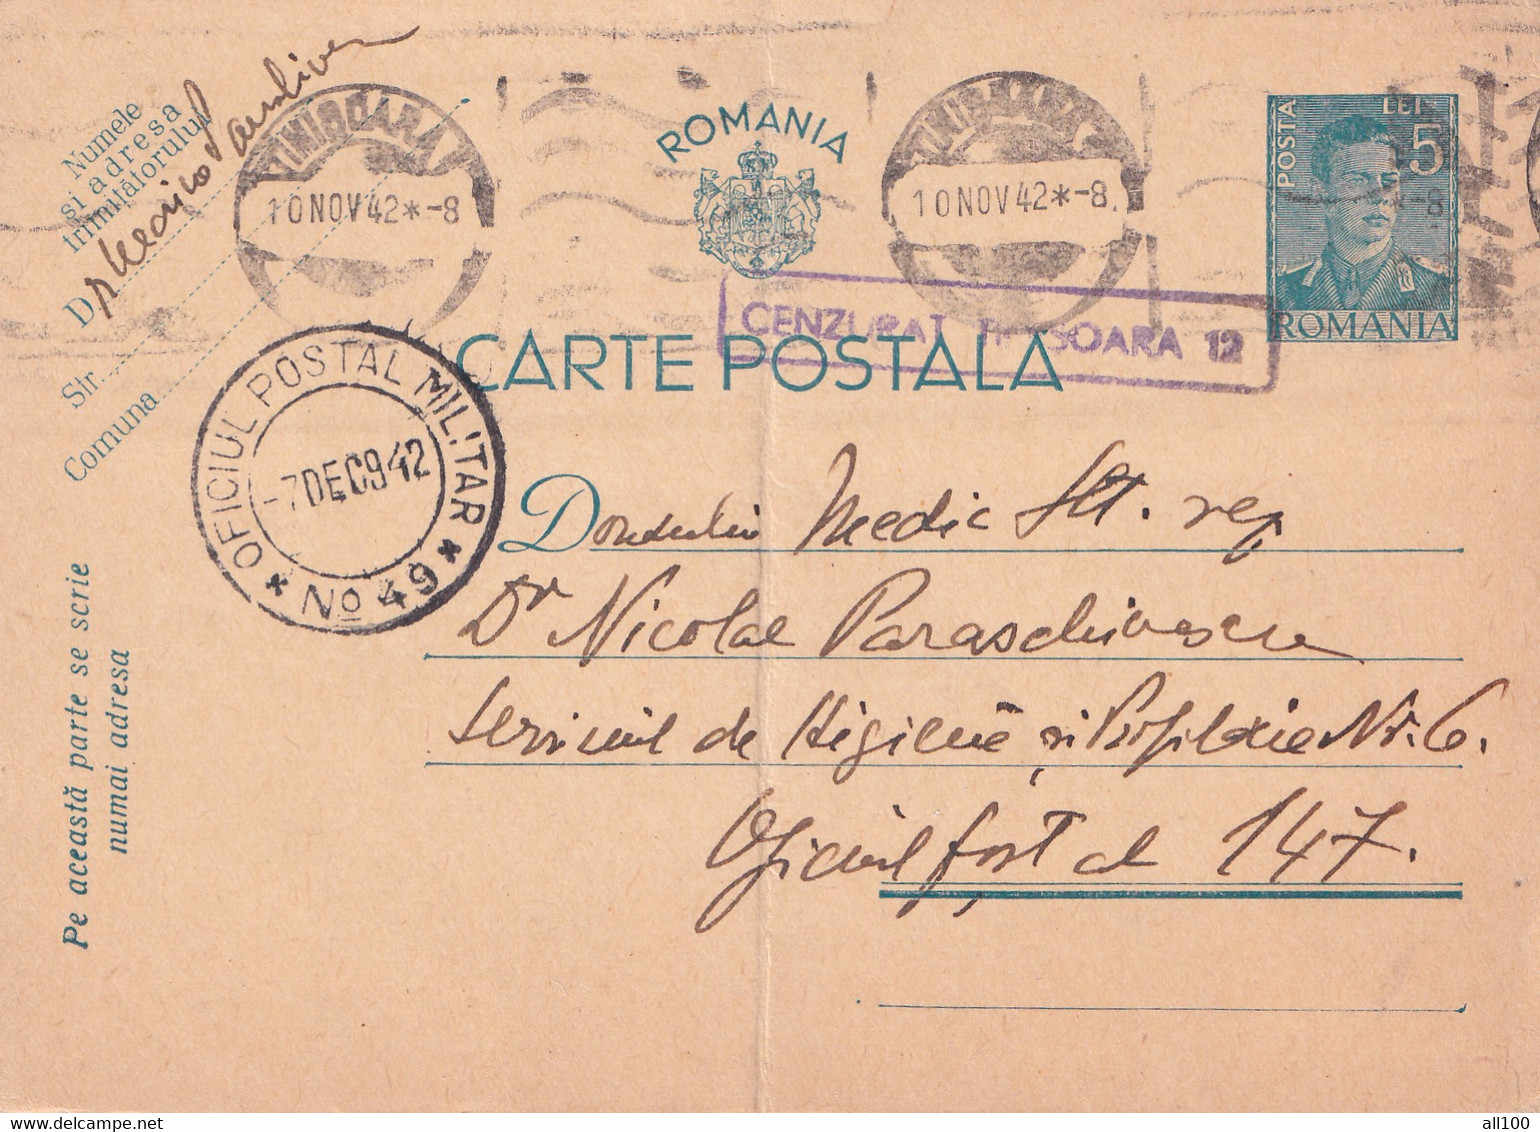 Numele
si adresa
trimiţătorului
D
Str.
Comuna
TIMISOARA
10 NOV 42 *-8
ROMANIA
TIMISOARA
10 NOV 42 *-8
POSTA LEI 5
ROMANIA
CENZURAT TIMISOARA 12
CARTE POSTALA
OFICIUL POSTAL MILITAR
-7 DEC 942
* No 49 *
Domnului Medic Slt. rez.
Dr Nicolae Paraschivescu
Serviciul de Higienă și Profilaxie Nr. 6.
Oficiul poștal 147.
Pe această parte se scrie
numai adresa
all100